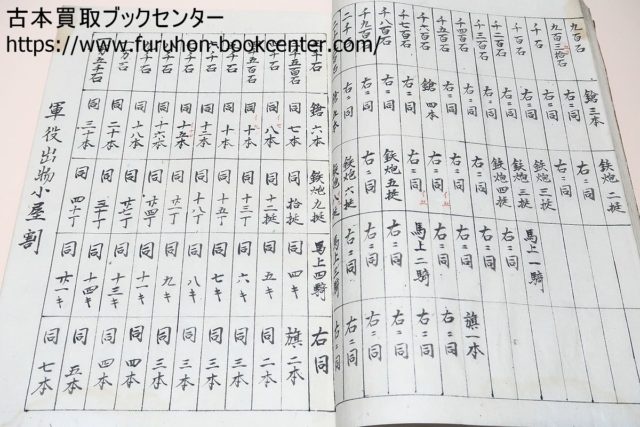 古本買取ブックセンター
https://www.furuhon-bookcenter.com/
九百石 鎗三本 鉄炮二挺
九百三拾石 右ニ同 右ニ同
千石 右ニ同 右ニ同
千百石 右ニ同 鉄炮三挺 馬上一騎
千二百石 右ニ同 鉄炮三挺 右ニ同
千三百石 右ニ同 鉄炮四挺 右ニ同 旗一本
千四百石 右ニ同 右ニ同 右ニ同 右ニ同
千五百石 鎗四本 右ニ同 右ニ同 右ニ同
千六百石 右ニ同 右ニ同 馬上二騎 右ニ同
千七百石 右ニ同 鉄炮五挺 右ニ同 右ニ同
千八百石 右ニ同 鉄炮六挺 右ニ同 右ニ同
千石 鎗六本 鉄炮九挺 馬上四騎 右同
同七本 同拾挺 同四キ 旗二本
千石 同八本 同十二挺 同五キ 同二本
五百石 同十本 同十三丁 同六キ 同三本
千石 同十本 同十五丁 同七キ 同三本
千石 同十二本 同十八丁 同八キ 同三本
千石 同十五本 同廿丁 同九キ 同三本
千石 同十六本 同廿四丁 同十一キ 同四本
千石 同十八本 同廿七丁 同十三キ 同四本
万石 同二十本 同三十丁 同十四キ 同五本
万五千石 同三十本 同四十丁 同廿一キ 同七本
軍役出物小屋割